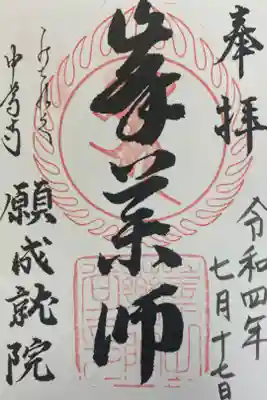 奉拝
令和四年
七月十七日
峯薬師
中尊寺
願成就院